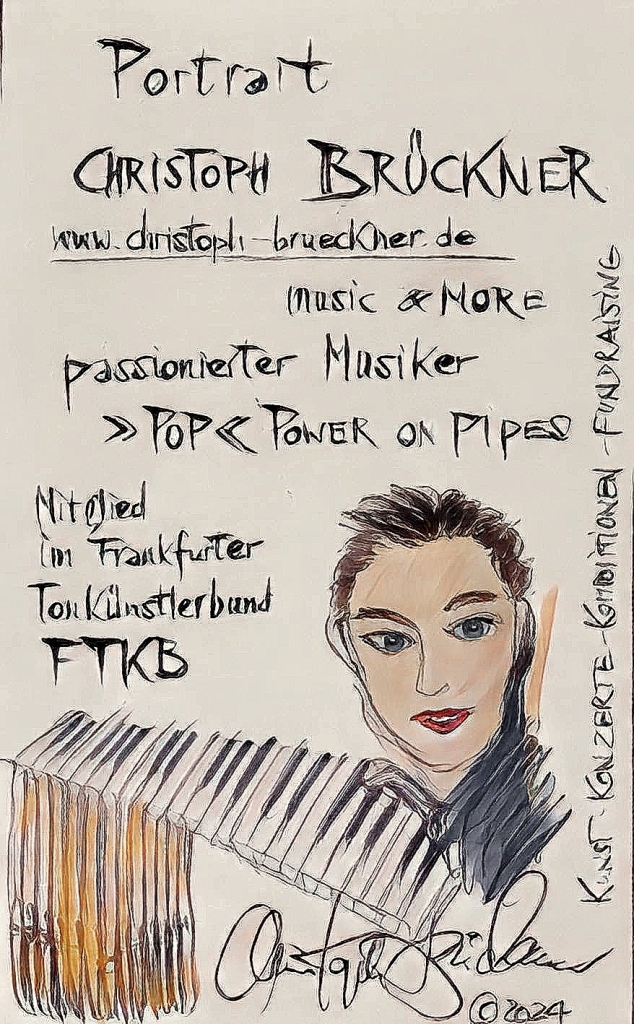 Portrait
CHRISTOPH BRÜCKNER
www.christoph-brueckner.de
music & MORE
passionierter Musiker
»POP« POWER ON PIPES
Mitglied
im Frankfurter
Tonkünstlerbund
FTKB
KUNST-KONZERTE-KOMPOSITIONEN-FUNDRAISING
Christoph Brückner
©2024